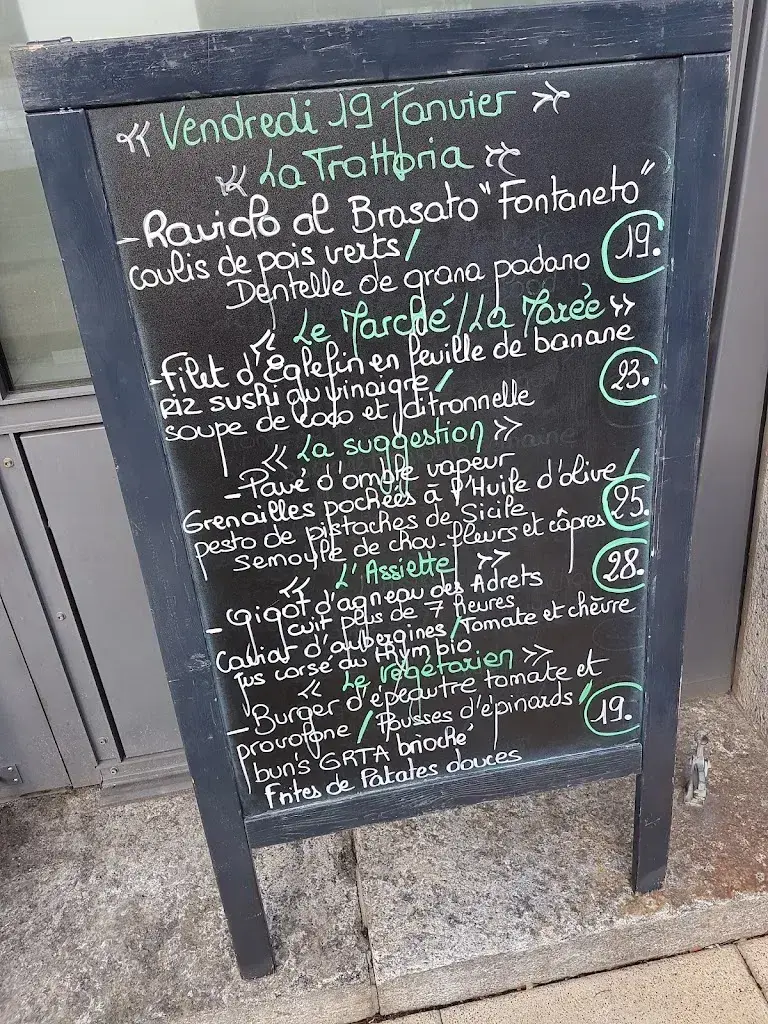 « Vendredi 19 Janvier »
« La Trattoria »
- Raviolo al Brasato "Fontaneto"
coulis de pois verts /
Dentelle de grana padano 19.
« Le Marché / La Marée »
- Filet d'Eglefin en feuille de banane
Riz sushi au vinaigre /
soupe de coco et citronnelle 23.
« La suggestion »
- Pavé d'omble vapeur
Grenailles pochées à l'Huile d'olive /
pesto de pistaches de Sicile
semoule de chou-fleurs et câpres 25.
« L'Assiette »
- Gigot d'agneau des Adrets 28.
cuit plus de 7 heures
Caviar d'aubergines / Tomate et chèvre
jus corsé au thym bio
« Le végétarien »
- Burger d'épeautre tomate et
provolone / Pousses d'épinards / 19.
bun's GRTA brioché
Frites de Patates douces